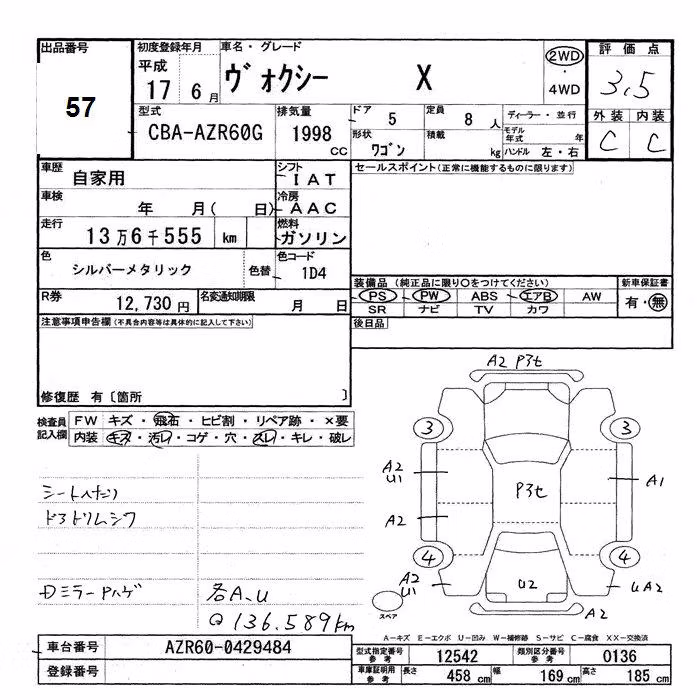 出品番号
57
初度登録年月
平成
17 6月
車名・グレード
ヴォクシー X
2WD
・
4WD
評価点
3.5
型式
CBA-AZR60G
排気量
1998
CC
ドア
5
定員
8人
形状
ワゴン
積載
kg
ディーラー・並行
モデル年式 年
ハンドル 左・右
外装 内装
C C
車歴
自家用
シフト
IAT
車検
年 月( 日)
冷房
AAC
走行
13万6千555 km
燃料
ガソリン
色
シルバーメタリック
色替
色コード
1D4
R券
12,730円
名変通知期限
月 日
セールスポイント(正常に機能するものに限ります)
装備品 (純正品に限り○をつけてください)
新車保証書
PS PW ABS エアB AW
有・無
SR ナビ TV カワ
後日品
注意事項申告欄(不具合内容等は具体的に記入して下さい)
修復歴 有〔箇所 〕
検査員記入欄
FW キズ・飛石・ヒビ割・リペア跡・×要
内装 キズ・汚レ・コゲ・穴・スレ・キレ・破レ
シートヘタリ
ドアトリムシワ
Dミラー Pハゲ
各A.U
@ 136.589km
A2 P3t
3 3
A2
U1
P3t
A1
A2
4 4
A2
U1
U2
UA2
スペア
A2
A−キズ E−エクボ U−凹み W−補修跡 S−サビ C−腐食 XX−交換済
車台番号
AZR60-0429484
登録番号
型式指定番号
参考
12542
類別区分番号
参考
0136
車庫証明用
参考
長さ
458 cm
幅
169 cm
高さ
185 cm